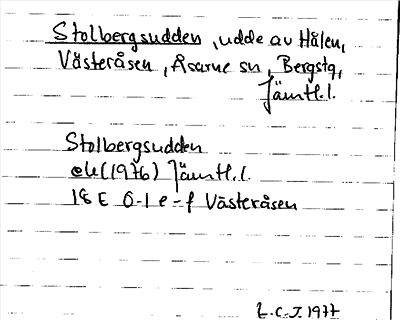 Stolbergsudden, udde av Hålen,
Västeråsen, Åsarne sn, Bergstg,
Jämtl.l.
Stolbergsudden
ek (1976) Jämtl.l.
18E 0-1 e-f Västeråsen
L.C.J. 1977